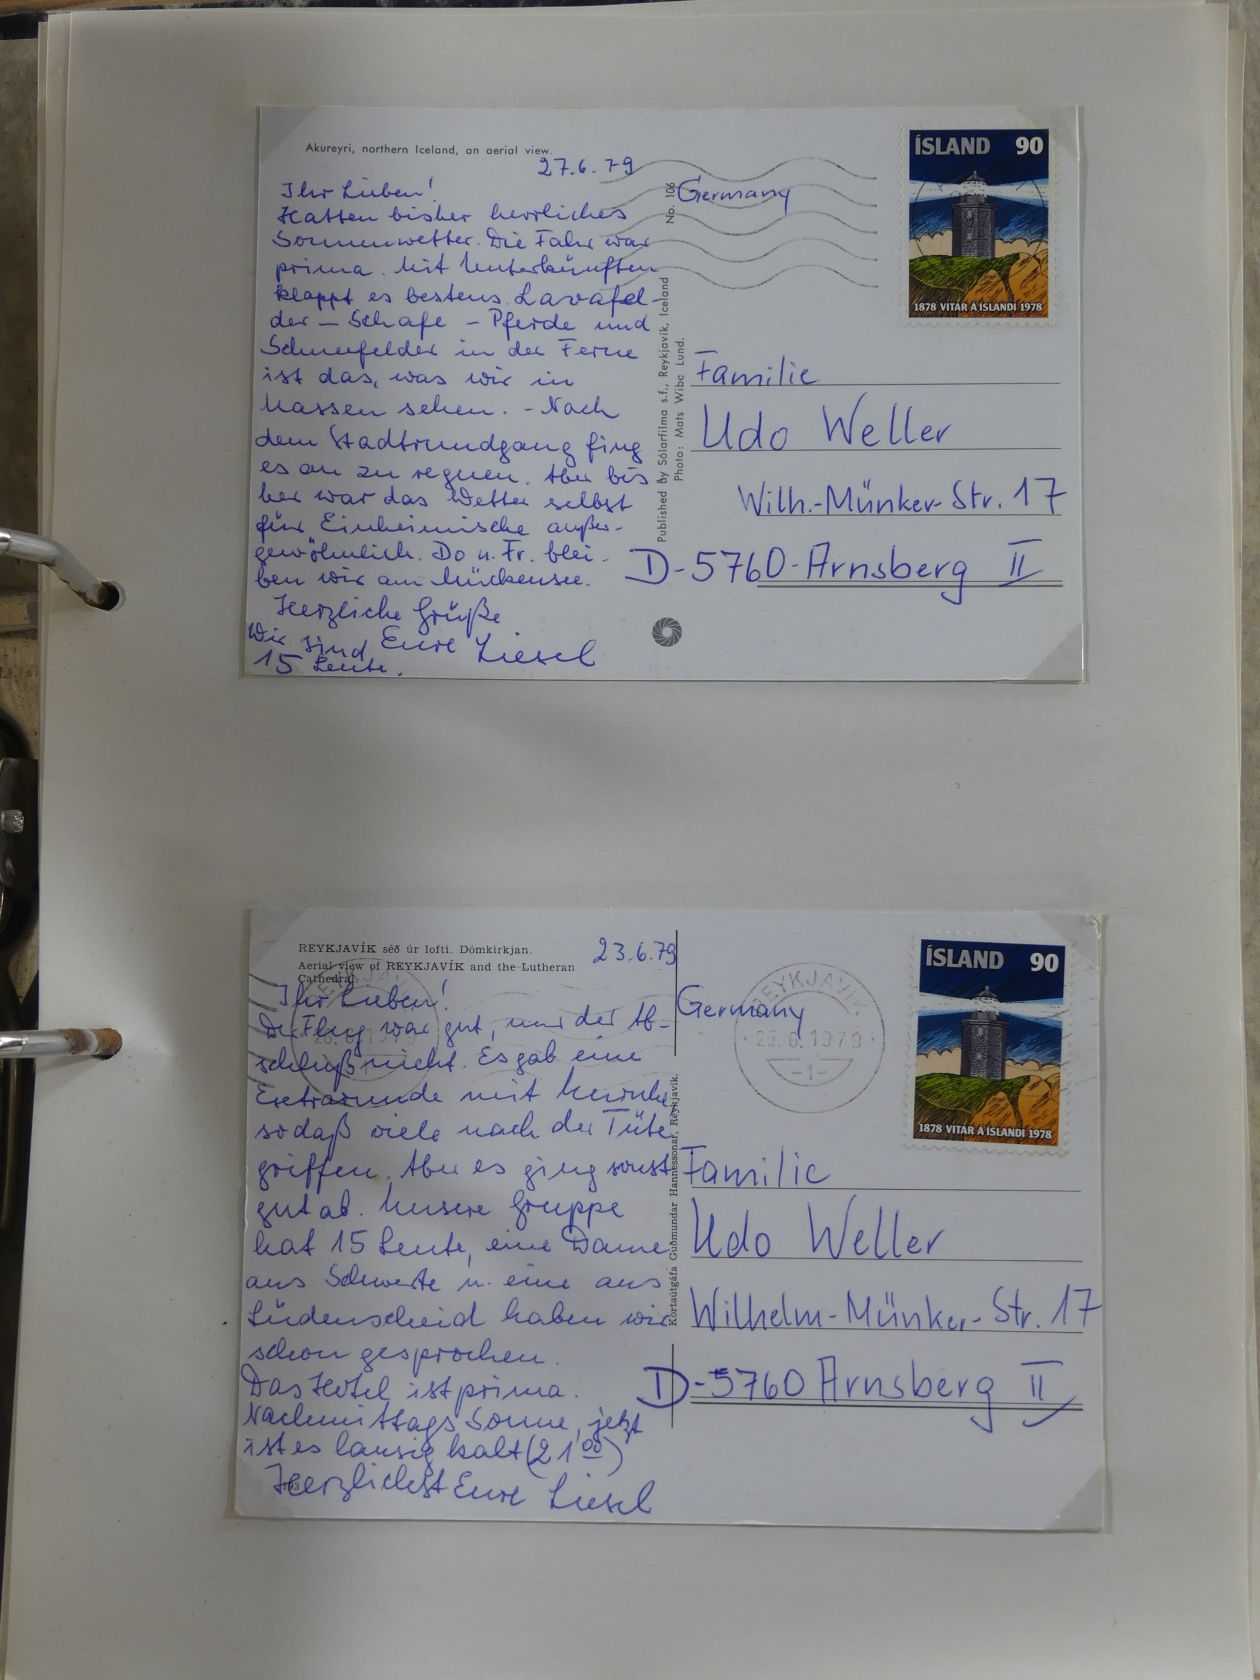 Akureyri, northern Iceland, an aerial view.
27.6.79
Ihr Lieben!
Hatten bisher herrliches
Sonnenwetter. Die Fahr war
prima. Mit Unterkünften
klappt es bestens. Lavafel-
der – Schafe – Pferde und
Schneefelder in der Ferne
ist das, was wir in
Massen sehen. - Nach
dem Stadtrundgang fing
es an zu regnen. Aber bis
her war das Wetter selbst
für Einheimische außer-
gewöhnlich. Do u. Fr. blei-
ben wir am Mückensee.
Herzliche Grüße
Eure Liesel
Wir sind
15 Leute.
No. 106
Published by Sólarfilma s.f., Reykjavík, Iceland
Photo: Mats Wibe Lund.
Germany
ÍSLAND 90
1878 VITAR Á ÍSLANDI 1978
Familie
Udo Weller
Wilh.-Münker-Str. 17
D-5760-Arnsberg II
REYKJAVÍK séð úr lofti. Dómkirkjan.
Aerial view of REYKJAVÍK and the Lutheran
Cathedral.
23.6.79
Ihr Lieben!
Der Flug war gut, nur der Ab-
schluß nicht. Es gab eine
Extrarunde mit Kurve
sodaß viele nach der Tüte
griffen. Aber es ging sonst
gut ab. Unsere Gruppe
hat 15 Leute, eine Dame
aus Schwerte u. eine aus
Lüdenscheid haben wir
schon gesprochen.
Das Hotel ist prima.
Nachmittags Sonne, jetzt
ist es lausig kalt (21 00)
Herzlichst Eure Liesel
Kortaútgáfa Guðmundar Hannessonar, Reykjavík.
Germany
REYKJAVÍK
1979
-1-
ÍSLAND 90
1878 VITAR Á ÍSLANDI 1978
Familie
Udo Weller
Wilhelm-Münker-Str. 17
D-5760 Arnsberg II